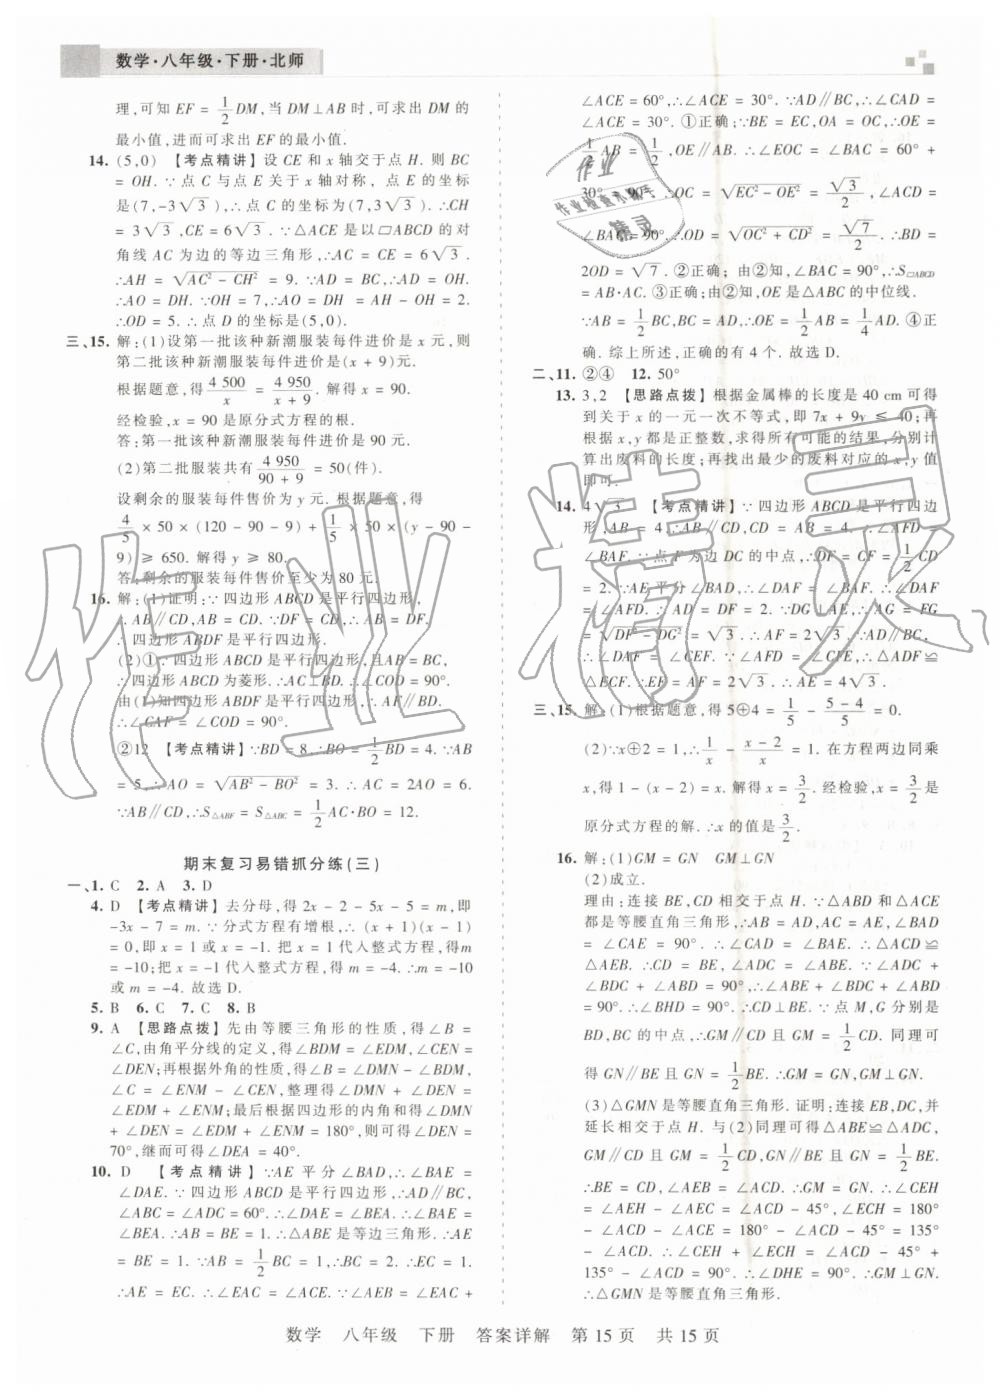 数学·八年级·下册·北师
理,可知 EF = 1/2 DM,当 DM⊥AB 时,可求出 DM 的
最小值,进而可求出 EF 的最小值.
14. (5,0) 【考点精讲】设 CE 和 x 轴交于点 H. 则 BC
= OH. ∵点 C 与点 E 关于 x 轴对称, 点 E 的坐标
是(7,-3√3), ∴点 C 的坐标为(7,3√3). ∴CH
= 3√3,CE = 6√3. ∵△ACE 是以▱ABCD 的对
角线 AC 为边的等边三角形,∴AC = CE = 6√3.
∴AH = √AC² - CH² = 9. ∵AD = BC,∴AD = OH.
∴AO = DH. ∵OH = 7,∴AO = DH = AH - OH = 2.
∴OD = 5. ∴点 D 的坐标是(5,0).
三、15. 解:(1)设第一批该种新潮服装每件进价是 x 元,则
第二批该种新潮服装每件进价是(x + 9)元.
根据题意,得 4 500/x = 4 950/(x + 9). 解得 x = 90.
经检验,x = 90 是原分式方程的根.
答:第一批该种新潮服装每件进价是 90 元.
(2)第二批服装共有 4 950/(90 + 9) = 50(件).
设剩余的服装每件售价为 y 元. 根据题意,得
4/5 × 50 × (120 - 90 - 9) + 1/5 × 50 × (y - 90 -
9) ≥ 650. 解得 y ≥ 80.
答:剩余的服装每件售价至少为 80 元.
16. 解:(1)证明:∵四边形 ABCD 是平行四边形,
∴AB∥CD,AB = CD. ∵DF = CD,∴AB = DF.
∴四边形 ABDF 是平行四边形.
(2)①∵四边形 ABCD 是平行四边形,且AB = BC,
∴四边形 ABCD 为菱形. ∴AC⊥BD.
由(1)知四边形 ABDF 是平行四边形,∴AF∥BD.
∴∠CAF = ∠COD = 90°.
②12 【考点精讲】∵BD = 8,∴BO = 1/2 BD = 4. ∵AB
= 5,∴AO = √AB² - BO² = 3. ∴AC = 2AO = 6.
∵AB∥CD,∴S△ABF = S△ABC = 1/2 AC·BO = 12.
期末复习易错抓分练(三)
一、1. C 2. A 3. D
4. D 【考点精讲】去分母,得 2x - 2 - 5x - 5 = m,即
-3x - 7 = m. ∵分式方程有增根,∴(x + 1)(x - 1)
= 0,即 x = 1 或 x = -1. 把 x = 1 代入整式方程,得m
= -10;把 x = -1 代入整式方程,得 m = -4. ∴m = -10
或 m = -4. 故选 D.
5. B 6. C 7. C 8. B
9. A 【思路点拨】先由等腰三角形的性质,得∠B =
∠C,由角平分线的定义,得∠BDM = ∠EDM,∠CEN =
∠DEN;再根据外角的性质,得∠B = ∠DMN - ∠BDM,
∠C = ∠ENM - ∠CEN,整理得∠DMN + ∠DEN =
∠EDM + ∠ENM;最后根据四边形的内角和得∠DMN
+ ∠DEN = ∠EDM + ∠ENM = 180°,则可得∠DEN =
70°,继而可得∠DEA = 40°.
10. D 【考点精讲】∵AE 平分∠BAD,∴∠BAE =
∠DAE. ∵四边形 ABCD 是平行四边形,∴AD∥BC,
∠ABC = ∠ADC = 60°. ∴∠DAE = ∠BEA. ∴∠BAE =
∠BEA. ∴AB = BE = 1. ∴△ABE 是等边三角形. ∴AE
= BE = 1. ∵AB = 1/2 BC = 1,∴BC = 2. ∴EC = 1.
∴AE = EC. ∴∠EAC = ∠ACE. ∵∠AEB = ∠EAC +
∠ACE = 60°,∴∠ACE = 30°. ∵AD∥BC,∴∠CAD =
∠ACE = 30°. ①正确;∵BE = EC,OA = OC,∴OE =
1/2 AB = 1/2,OE∥AB. ∴∠EOC = ∠BAC = 60° +
30° = 90°. ∴OC = √EC² - OE² = √3/2,∠ACD =
∠BAC = 90°. ∴OD = √OC² + CD² = √7/2. ∴BD =
2OD = √7. ②正确; 由②知,∠BAC = 90°,∴S▱ABCD
= AB·AC. ③正确;由②知,OE 是△ABC 的中位线.
∵AB = 1/2 BC,BC = AD,∴OE = 1/2 AB = 1/4 AD. ④正
确. 综上所述,正确的有 4 个. 故选 D.
二、11. ②④ 12. 50°
13. 3,2 【思路点拨】根据金属棒的长度是 40 cm 可得
到关于 x 的一元一次不等式,即 7x + 9y ≤ 40;再
根据 x,y 都是正整数,求得所有可能的结果,分别计
算出废料的长度;再找出最少的废料对应的 x,y 值
即可.
14. 4√3 【考点精讲】∵四边形 ABCD 是平行四边
形,AB = 4,∴AB∥CD,CD = AB = 4. ∴∠AFD =
∠BAF. ∵点 F 为边 DC 的中点,∴DF = CF = 1/2 CD
= 2. ∵AE 平分∠BAD,∴∠DAF = ∠BAF. ∴∠DAF
= ∠AFD. ∴AD = DF = 2. ∵DG⊥AE,∴AG = FG
= √DF² - DG² = √3. ∴AF = 2√3. ∵AD∥BC,
∴∠DAF = ∠CEF. ∵∠AFD = ∠CFE,∴△ADF≌
△ECF. ∴EF = AF = 2√3. ∴AE = 4√3.
三、15. 解:(1)根据题意,得 5⊕4 = 1/5 - (5 - 4)/5 = 0.
(2)∵x⊕2 = 1,∴1/x - (x - 2)/x = 1. 在方程两边同乘
x,得 1 - (x - 2) = x. 解得 x = 3/2. 经检验,x = 3/2 是
原分式方程的解. ∴x 的值是 3/2.
16. 解:(1)GM = GN GM⊥GN
(2)成立.
理由:连接 BE,CD 相交于点 H. ∵△ABD 和△ACE
都是等腰直角三角形,∴AB = AD,AC = AE,∠BAD
= ∠CAE = 90°. ∴∠CAD = ∠BAE. ∴△ACD≌
△AEB. ∴CD = BE,∠ADC = ∠ABE. ∵∠ADC +
∠BDC + ∠ABD = 90°,∴∠ABE + ∠BDC + ∠ABD
= 90°. ∴∠BHD = 90°. ∴CD⊥BE. ∵点 M,G 分别是
BD,BC 的中点,∴GM∥CD 且 GM = 1/2 CD. 同理可
得 GN∥BE 且 GN = 1/2 BE. ∴GM = GN,GM⊥GN.
(3)△GMN 是等腰直角三角形. 证明:连接 EB,DC,并
延长相交于点 H. 与(2)同理可得△ABE≌△ADC,
GM∥CD 且 GM = 1/2 CD,GN∥BE 且 GN = 1/2 BE.
∴BE = CD,∠AEB = ∠ACD. ∴GM = GN. ∴∠CEH
= ∠AEH - ∠AEC = ∠ACD - 45°,∠ECH = 180°
- ∠ACD - ∠ACE = 180° - ∠ACD - 45° = 135°
- ∠ACD. ∴∠CEH + ∠ECH = ∠ACD - 45° +
135° - ∠ACD = 90°. ∴∠DHE = 90°. ∴GM⊥GN.
∴△GMN 是等腰直角三角形.
数学 八年级 下册 答案详解 第 15 页 共 15 页
作业精灵